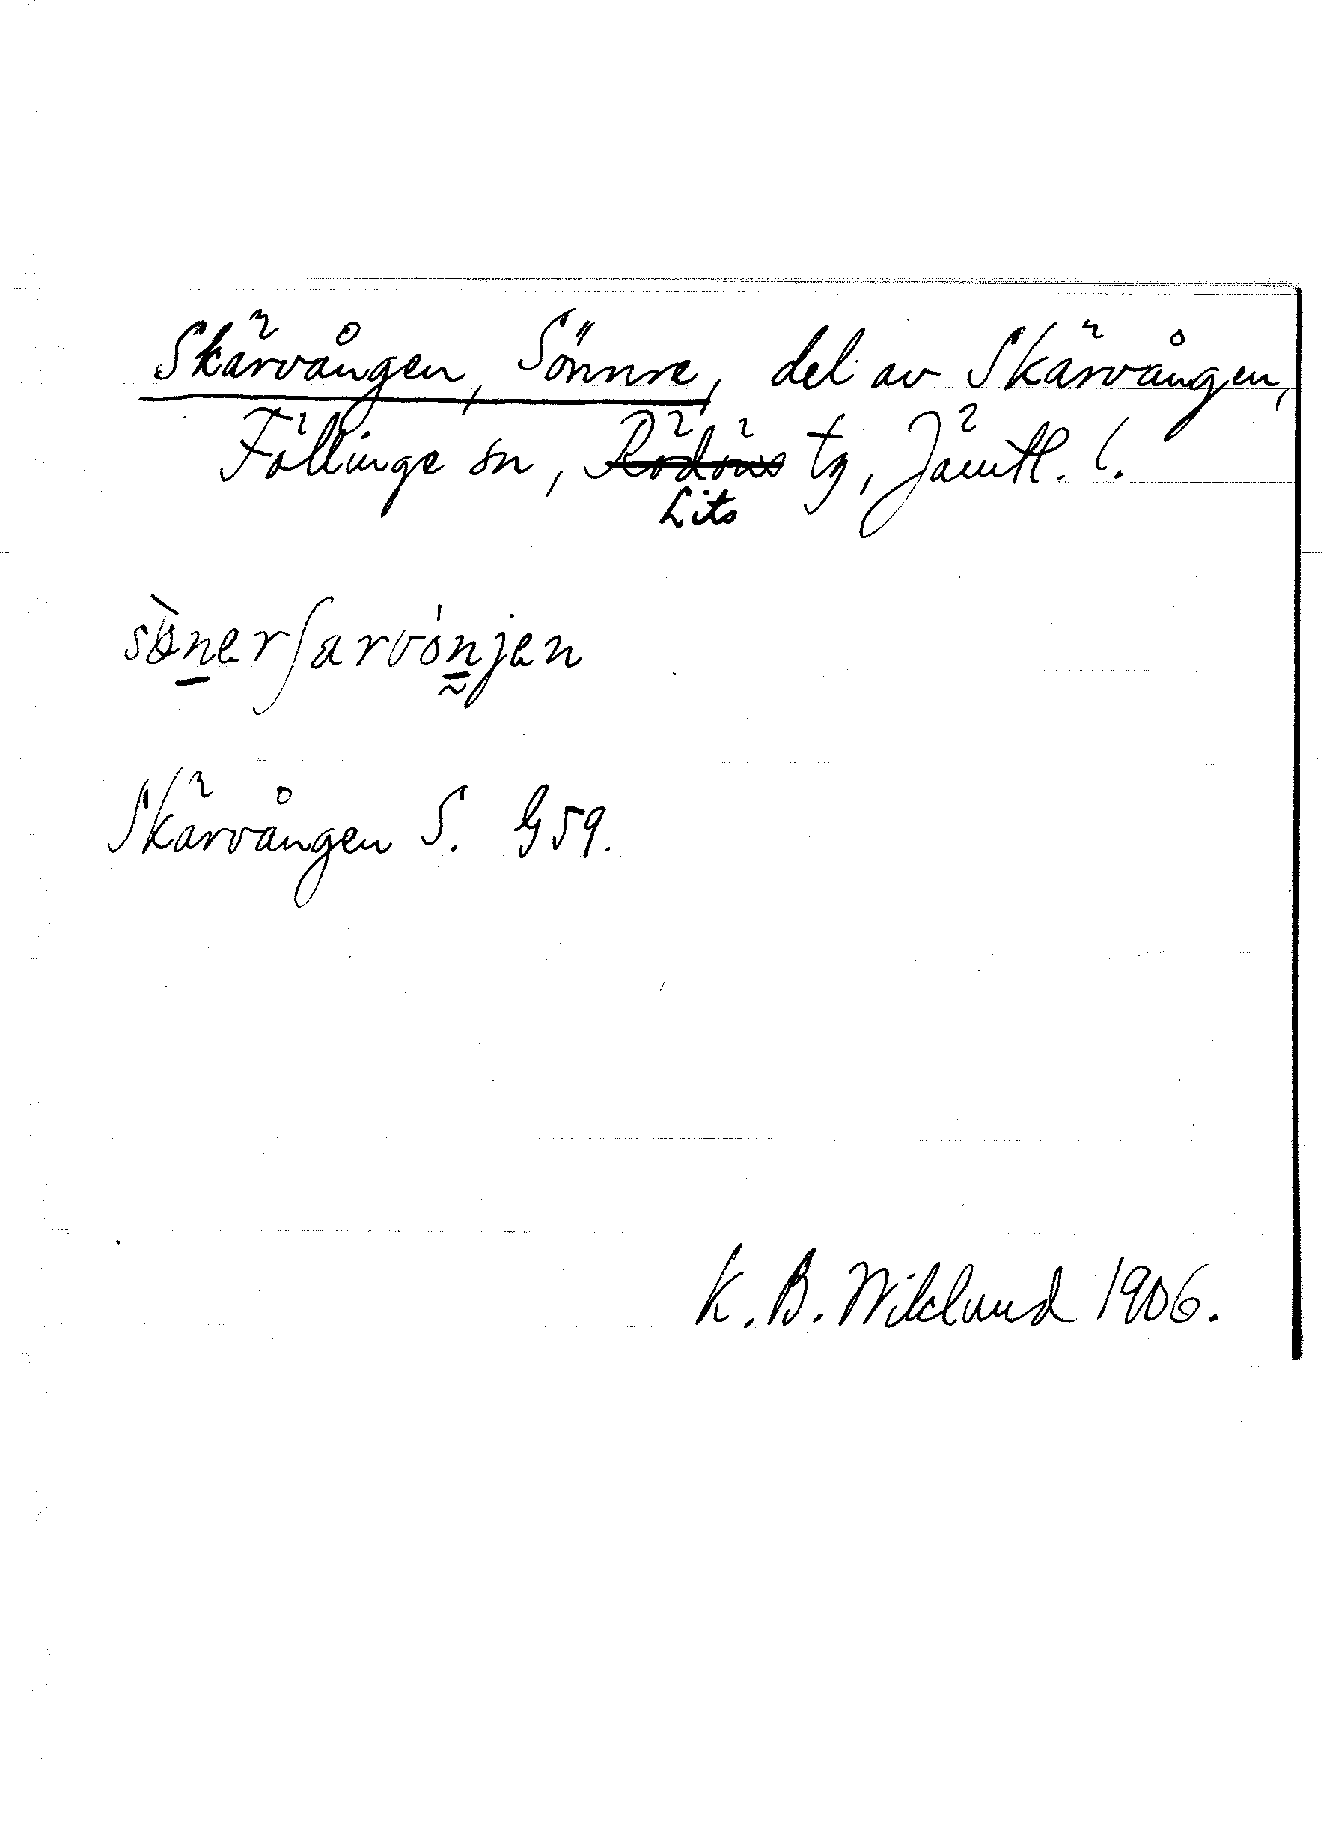 Skärvången, Sönnre, del av Skärvången,
Föllinge sn, ~~Rödöns~~ tg, Jämtl. l.
Lits
sònerʃarvónjen
Skärvången S. G59.
K. B. Wiklund 1906.